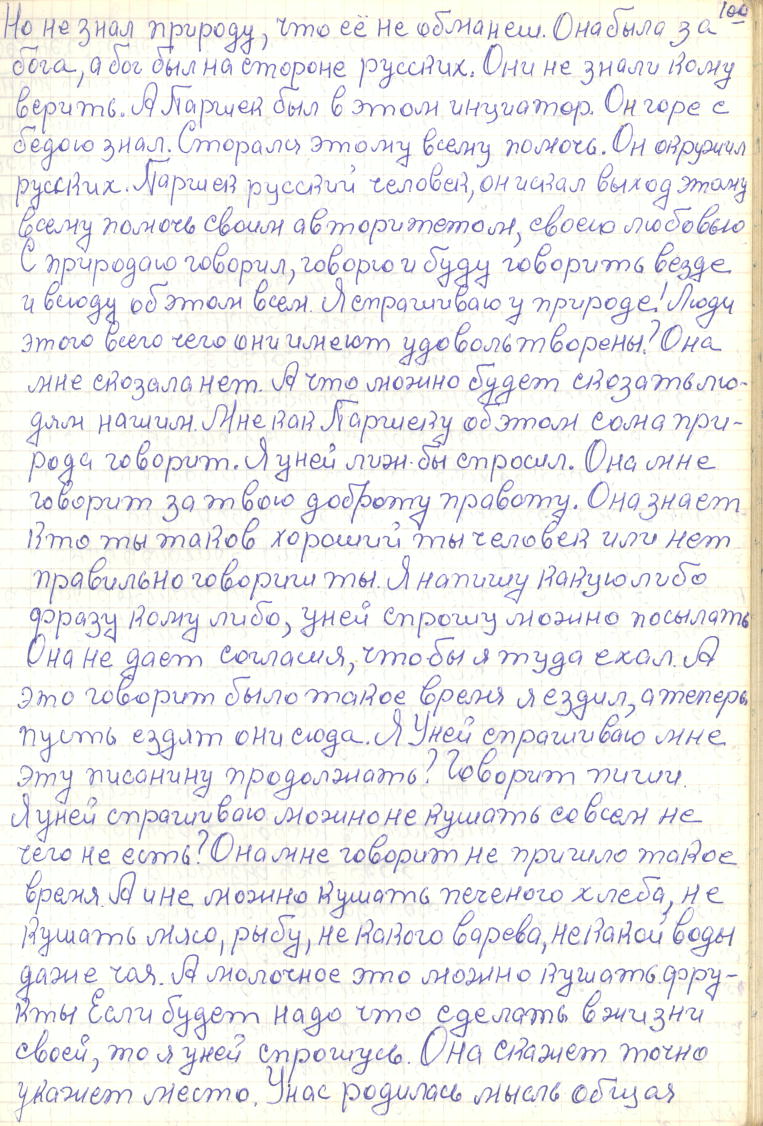 100
Но не знал природу, что её не обманеш. Она была за
бога, а бог был на стороне русских. Они не знали кому
верить. А Паршек был в этом инциатор. Он горе с
бедою знал. Сторался этому всему помочь. Он окружил
русских. Паршек русский человек, он искал выход этому
всему помочь своим авторитетом, своею любовью
С природаю говорил, говорю и буду говорить везде
и всюду об этом всем. Я спрашиваю у природе! Люди
этого всего чего они имеют удовольтворены? Она
мне скозала нет. А что можно будет скозать лю-
дям нашим. Мне как Паршеку об этом сома при-
рода говорит. Я уней лиж бы спросил. Она мне
говорит за твою доброту правоту. Она знает
кто ты таков хороший ты человек или нет
правильно говориш ты. Я напишу какую либо
фразу кому либо, уней спрошу можно посылать
Она не дает согласия, чтобы я туда ехал. А
это говорит было такое время я ездил, а теперь
пусть ездят они сюда. Я Уней спрашиваю мне
эту писанину продолжать? Говорит пиши.
Я уней спрашиваю можно не кушать совсем не
чего не есть? Она мне говорит не пришло такое
время. А и не можно кушать печеного хлеба, не
кушать мясо, рыбу, не какого варева, не какой воды
даже чая. А молочное это можно кушать фру-
кты Если будет надо что сделать в жизни
своей, то я уней спрошусь. Она скажет точно
укажет место. Унас родилась мысль общая